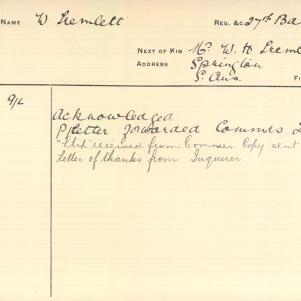 NAME W Tremlett REG. &C 27th Ba
NEXT OF KIN Mr. W. H. Tremle
ADDRESS Springton
S. Aus.
9/2 Acknowledged
P/letter forwarded Commrs
received from Commrs Copy sent
Letter of thanks from Inquirer.